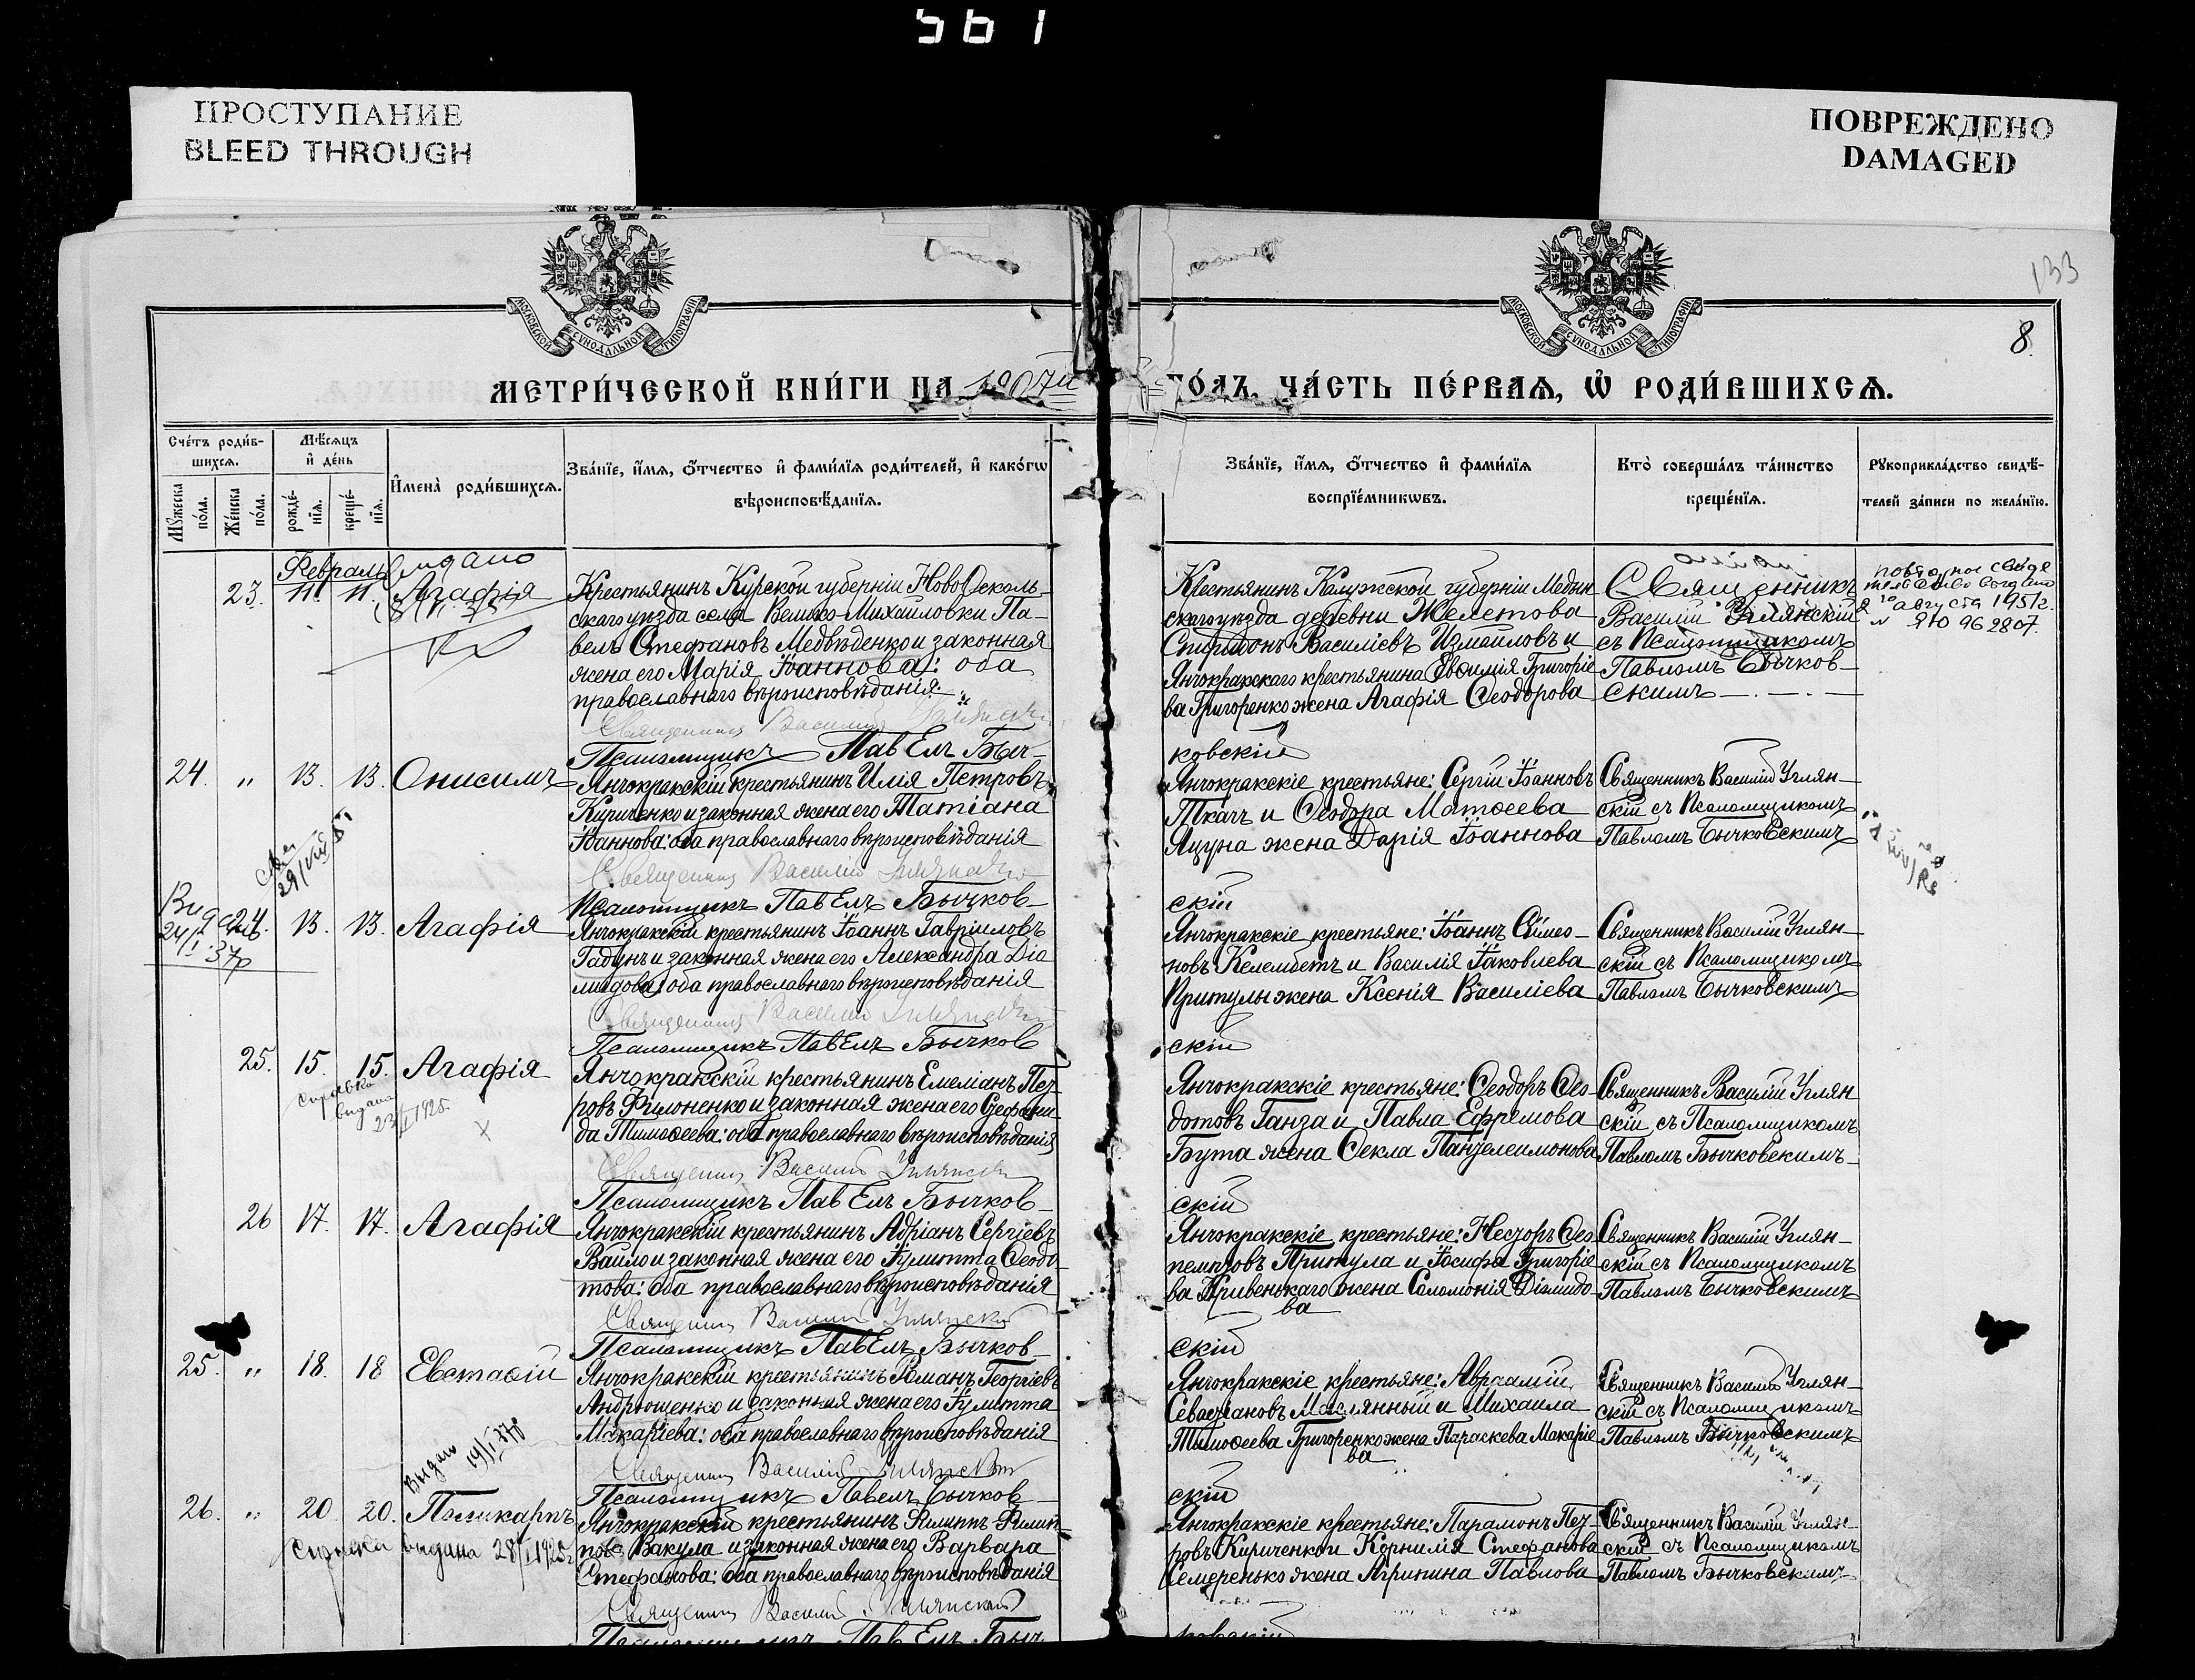 561
ПРОСТУПАНИЕ
BLEED THROUGH
ПОВРЕЖДЕНО
DAMAGED
МОСКОВСКОЙ СѴНОДАЛЬНОЙ ТИПОГРАФІИ
МОСКОВСКОЙ СѴНОДАЛЬНОЙ ТИПОГРАФІИ
133
8.
МЕТРИ́ЧЕСКОЙ КНИ́ГИ НА 1907й ГО́ДЪ, ЧА́СТЬ ПЕ́РВАЯ, Ѡ҆ РОДИ́ВШИХСѦ.
Сче́тъ роди́в-
шихся.
Мꙋжеска по́ла.
Же́нска по́ла.
Мѣ́сяцъ
и҆ де́нь
рожде́-
нїѧ.
креще́-
нїѧ.
И҆мена̀ роди́вшихся.
Зва́нїе, и҆́мѧ, ѻ҆́тчество и҆ фами́лїѧ роди́телей, и҆ како́гѡ
вѣроисповѣ́данїѧ.
Зва́нїе, и҆́мѧ, ѻ҆́тчество и҆ фами́лїѧ
воспрїе́мникѡвъ.
Кто̀ соверша́лъ та́инство
креще́нїѧ.
Рꙋкоприкла́дство свидѣ́-
телей за́писи по жела́нїю.
Февраль
23. 11. 11. Агафія
Крестьянинъ Курской губерніи Новооскольс-
скаго уѣзда села Велико-Михайловки Па-
велъ Стефановъ Медвѣденко и законная
жена его Марія Іоаннова: оба
православнаго вѣроисповѣданія
Священникъ Василій Углянскій
Псаломщикъ Павелъ Быч-
ковскій
Крестьянинъ Калужской губерніи Медын
скаго уѣзда деревни Желетова
Спиридонъ Василіевъ Измайловъ и
Янчокракскаго крестьянина Евфимія Григоріе
ва Григоренко жена Агафія Ѳеодорова
Священникъ
Василій Углянскій
съ Псаломщикомъ
Павломъ Бычков-
скимъ
повторное свиде
тельство выдано
10 августа 1951г.
ЯЮ 962807.
24. " 13. 13. Онисимъ
Янчокракскій крестьянинъ Илія Петровъ
Кириченко и законная жена его Татіана
Іоаннова: оба православнаго вѣроисповѣданія
Священникъ Василій Углянскій
Псаломщикъ Павелъ Бычков-
скій
Янчокракскіе крестьяне: Сергій Іоанновъ
Ткачъ и Ѳеодора Матѳеева
Яцуна жена Дарія Іоаннова
Священникъ Василій Углян-
скій съ Псаломщикомъ
Павломъ Бычковскимъ
24. 13. 13. Агафія
Янчокракскій крестьянинъ Іоаннъ Гавріиловъ
Гадунъ и законная жена его Александра Діо
мидова: оба православнаго вѣроисповѣданія
Священникъ Василій Углянскій
Псаломщикъ Павелъ Бычков
скій
Янчокракскіе крестьяне: Іоаннъ Сімео-
новъ Келембетъ и Василія Іаковлева
Притулы жена Ксенія Василіева
Священникъ Василій Углян-
скій съ Псаломщикомъ
Павломъ Бычковскимъ
25. 15. 15. Агафія
справка
выдана
1925.
Янчокракскій крестьянинъ Емеліанъ Пет-
ровъ Филоненко и законная жена его Стефани
да Тимоѳеева: оба православнаго вѣроисповѣданія
Священникъ Василій Углянскій
Псаломщикъ Павелъ Бычков-
скій
Янчокракскіе крестьяне: Ѳеодоръ Ѳео-
дотовъ Ганза и Павла Ефремова
Бута жена Ѳекла Пантелеимонова
Священникъ Василій Углян
скій съ Псаломщикомъ
Павломъ Бычковскимъ
26 17. 17. Агафія
Янчокракскій крестьянинъ Адріанъ Сергіевъ
Вайло и законная жена его Іулитта Ѳеодо
това: оба православнаго вѣроисповѣданія
Священникъ Василій Углянскій
Псаломщикъ Павелъ Бычков-
скій
Янчокракскіе крестьяне: Несторъ Ѳео
пемптовъ Притула и Іосифа Григоріе
ва Кривенькаго жена Соломонія Діомидо
ва
Священникъ Василій Углян-
скій съ Псаломщикомъ
Павломъ Бычковскимъ
25. " 18. 18 Евстаѳій
Янчокракскій крестьянинъ Романъ Георгіевъ
Андрющенко и законная жена его Іулитта
Макаріева: оба православнаго вѣроисповѣданія
Священникъ Василій Углянскій
Псаломщикъ Павелъ Бычков-
скій
Янчокракскіе крестьяне: Авраамій
Севастіановъ Маслянный и Михаила
Тимоѳеева Григоренко жена Параскева Макаріе
ва
Священникъ Василій Углян-
скій съ Псаломщикомъ
Павломъ Бычковскимъ
26. " 20 20. Поликарпъ
справка выдана
Янчокракскій крестьянинъ Филиппъ Филип
повъ Вакула и законная жена его Варвара
Стефанова: оба православнаго вѣроисповѣданія
Священникъ Василій Углянскій
Псаломщикъ Павелъ Быч-
ковскій
Янчокракскіе крестьяне: Парамонъ Пет-
ровъ Кириченко и Корнилія Стефанова
Семеренько жена Агрипина Павлова
Священникъ Василій Углян-
скій съ Псаломщикомъ
Павломъ Бычковскимъ